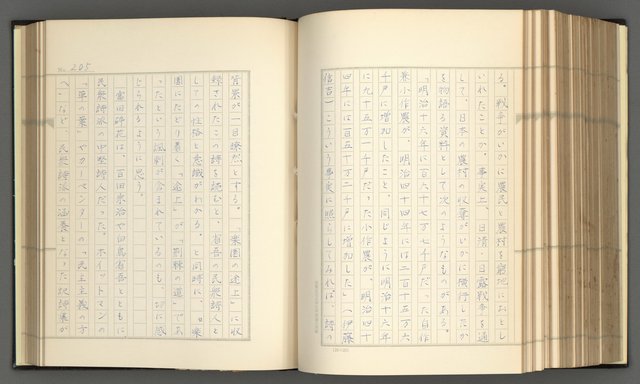 る。戦争がいかに農民と農村を窮地におとし
いれたことか。事実上、日清・日露戦争を通
して、日本の農村の収奪がいかに横行したか
を物語る資料として次のようなものがある。
「明治十六年に百六十七万七千戸だった自作
兼小作農が、明治四十四年には二百十五万六
千戸に増加したこと、同じように明治十六年
に九十五万一千戸だった小作農が、明治四十
四年には百五十万二千戸に増加した」（伊藤
信吉）こういう事実に照らしてみれば、詩の
No. 205
背景が一目瞭然とする。「楽園の途上」に収
録されたこの詩を読むと、省吾の民衆詩人と
しての性格と意識がわかる。と同時に、「楽
園にたどり着く「途上」が「荊棘の道」であ
ったという諷刺が含まれているのも、切に感
じられるように思う。
富田砕花は、百田宗治や白鳥省吾とともに
民衆詩派の中堅詩人だった。ホイットマンの
「草の葉」やカーペンターの「民主主義の方
へ」など、民衆詩派の涵養となった訳詩集が